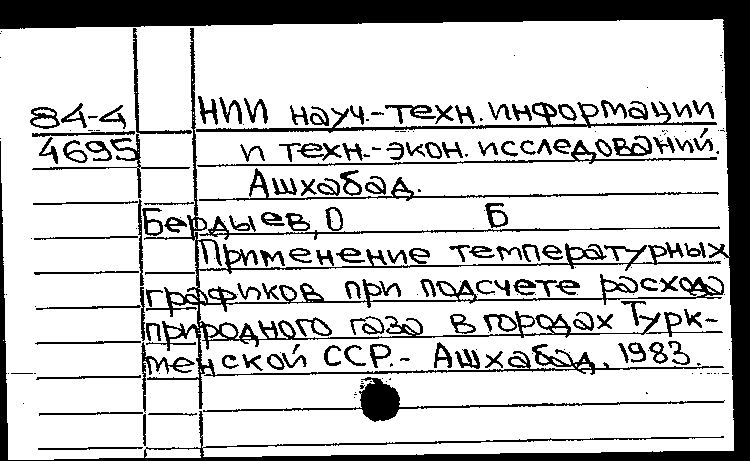 84-4 НИИ науч.-техн. информации
4695 и техн.-экон. исследований.
Ашхабад.
Бердыев, О Б
Применение температурных
графиков при подсчете расхода
природного газа в городах Турк-
менской ССР. - Ашхабад, 1983.